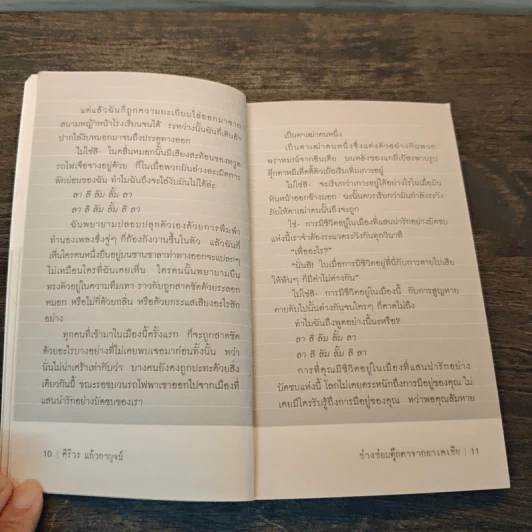 แต่แล้วฉันก็ถูกความยะเยียบไล่ออกมาจาก
สนามหญ้าหน้าโรงเรียนจนได้ ระหว่างนั้นฉันก็เดินอ้า
ปากไล่งับหมอกมาจนถึงประตูทางออก
ไม่ใช่สิ- ในคลื่นหมอกนั้นมีเสียงสะท้อนของหวูด
รถไฟเจือจางอยู่ด้วย ก็ในเมื่อพวกมันล่วงละเมิดการ
พักผ่อนของฉัน ทำไมฉันถึงจะไล่งับมันไม่ได้ล่ะ
ลา ลี ลัม ลั้ม ลา
ลา ลี ลัม ลั้ม ลิ ลา
ฉันพยายามปลอบปลุกตัวเองด้วยการพึมพำ
ทำนองเพลงซึ่งจู่ๆ ก็ก้องกังวานขึ้นในหัว แล้วฉันก็
เห็นใครคนหนึ่งยืนอยู่บนชานชาลาท่าทางออกจะแปลกๆ
ไม่เหมือนใครที่ฉันเคยเห็น ใครคนนั้นพยายามยืน
ทรงตัวอยู่ในความหึมเทา ราวกับถูกสาดซัดด้วยระลอก
หมอก หรือไม่ก็ด้วยกลิ่น หรือด้วยกระแสเสียงอะไรสัก
อย่าง
ทุกคนที่เข้ามาในเมืองนี้ครั้งแรก ก็จะถูกสาดซัด
ด้วยอะไรบางอย่างที่ไม่เคยพบเจอมาก่อนทั้งนั้น ทว่า
นั่นไม่น่าเศร้าเท่ากับว่า บางคนยังคงถูกปะทะด้วยสิ่ง
เดียวกันนี้ ขณะรอขบวนรถไฟพาเขาออกไปจากเมืองที่
แสนน่ารักอย่างบัดซบของเรา
10 | ศิริวร แก้วกาญจน์
เป็นตาเฒ่าคนหนึ่ง
เป็นตาเฒ่าคนหนึ่งซึ่งแต่งตัวอย่างกับพวก
พราหมณ์จากอินเดีย บนหลังของแกมีเป้สะพายรูป
ตุ๊กตาหมีเท็ดดี้ตัวเบ้อเริ่มเทิ่มเกาะอยู่
ไม่ใช่สิ- จะเรียกว่าเกาะอยู่ได้อย่างไรในเมื่อมัน
หันหน้าออกข้างนอก ฉะนั้นควรเรียกว่ามันกำลังระวัง
ภัยให้ตาเฒ่าคนนั้นถึงจะถูก
ใช่- การมีชีวิตอยู่ในเมืองที่แสนน่ารักอย่างบัดซบ
แห่งนี้เราจำต้องระแวดระวังกันทุกวินาที
"เพื่ออะไร?"
"นั่นสิ! ในเมื่อการมีชีวิตอยู่ที่นี่กับการตายไปเสีย
ให้พ้นๆ ก็มีค่าไม่ต่างกัน"
ไม่ใช่สิ- การมีชีวิตอยู่ในเมืองนี้ กับการสูญหาย
ตายดับไปนั้นต่างกันจนใครๆ ก็คาดไม่ถึง
ทำไมฉันถึงพูดอย่างนี้นะหรือ?
ลา ลี ลัม ลั้ม ลา
ลา ลี ลัม ลั้ม ลิ ลา
การที่คุณมีชีวิตอยู่ในเมืองที่แสนน่ารักอย่าง
บัดซบแห่งนี้ โลกไม่เคยตระหนักถึงการมีอยู่ของคุณ ไม่
เคยมีใครรับรู้ถึงการมีอยู่ของคุณ ทว่าพอคุณล้มหาย
ช่างซ่อมตุ๊กตาจากอาเคเชีย | 11